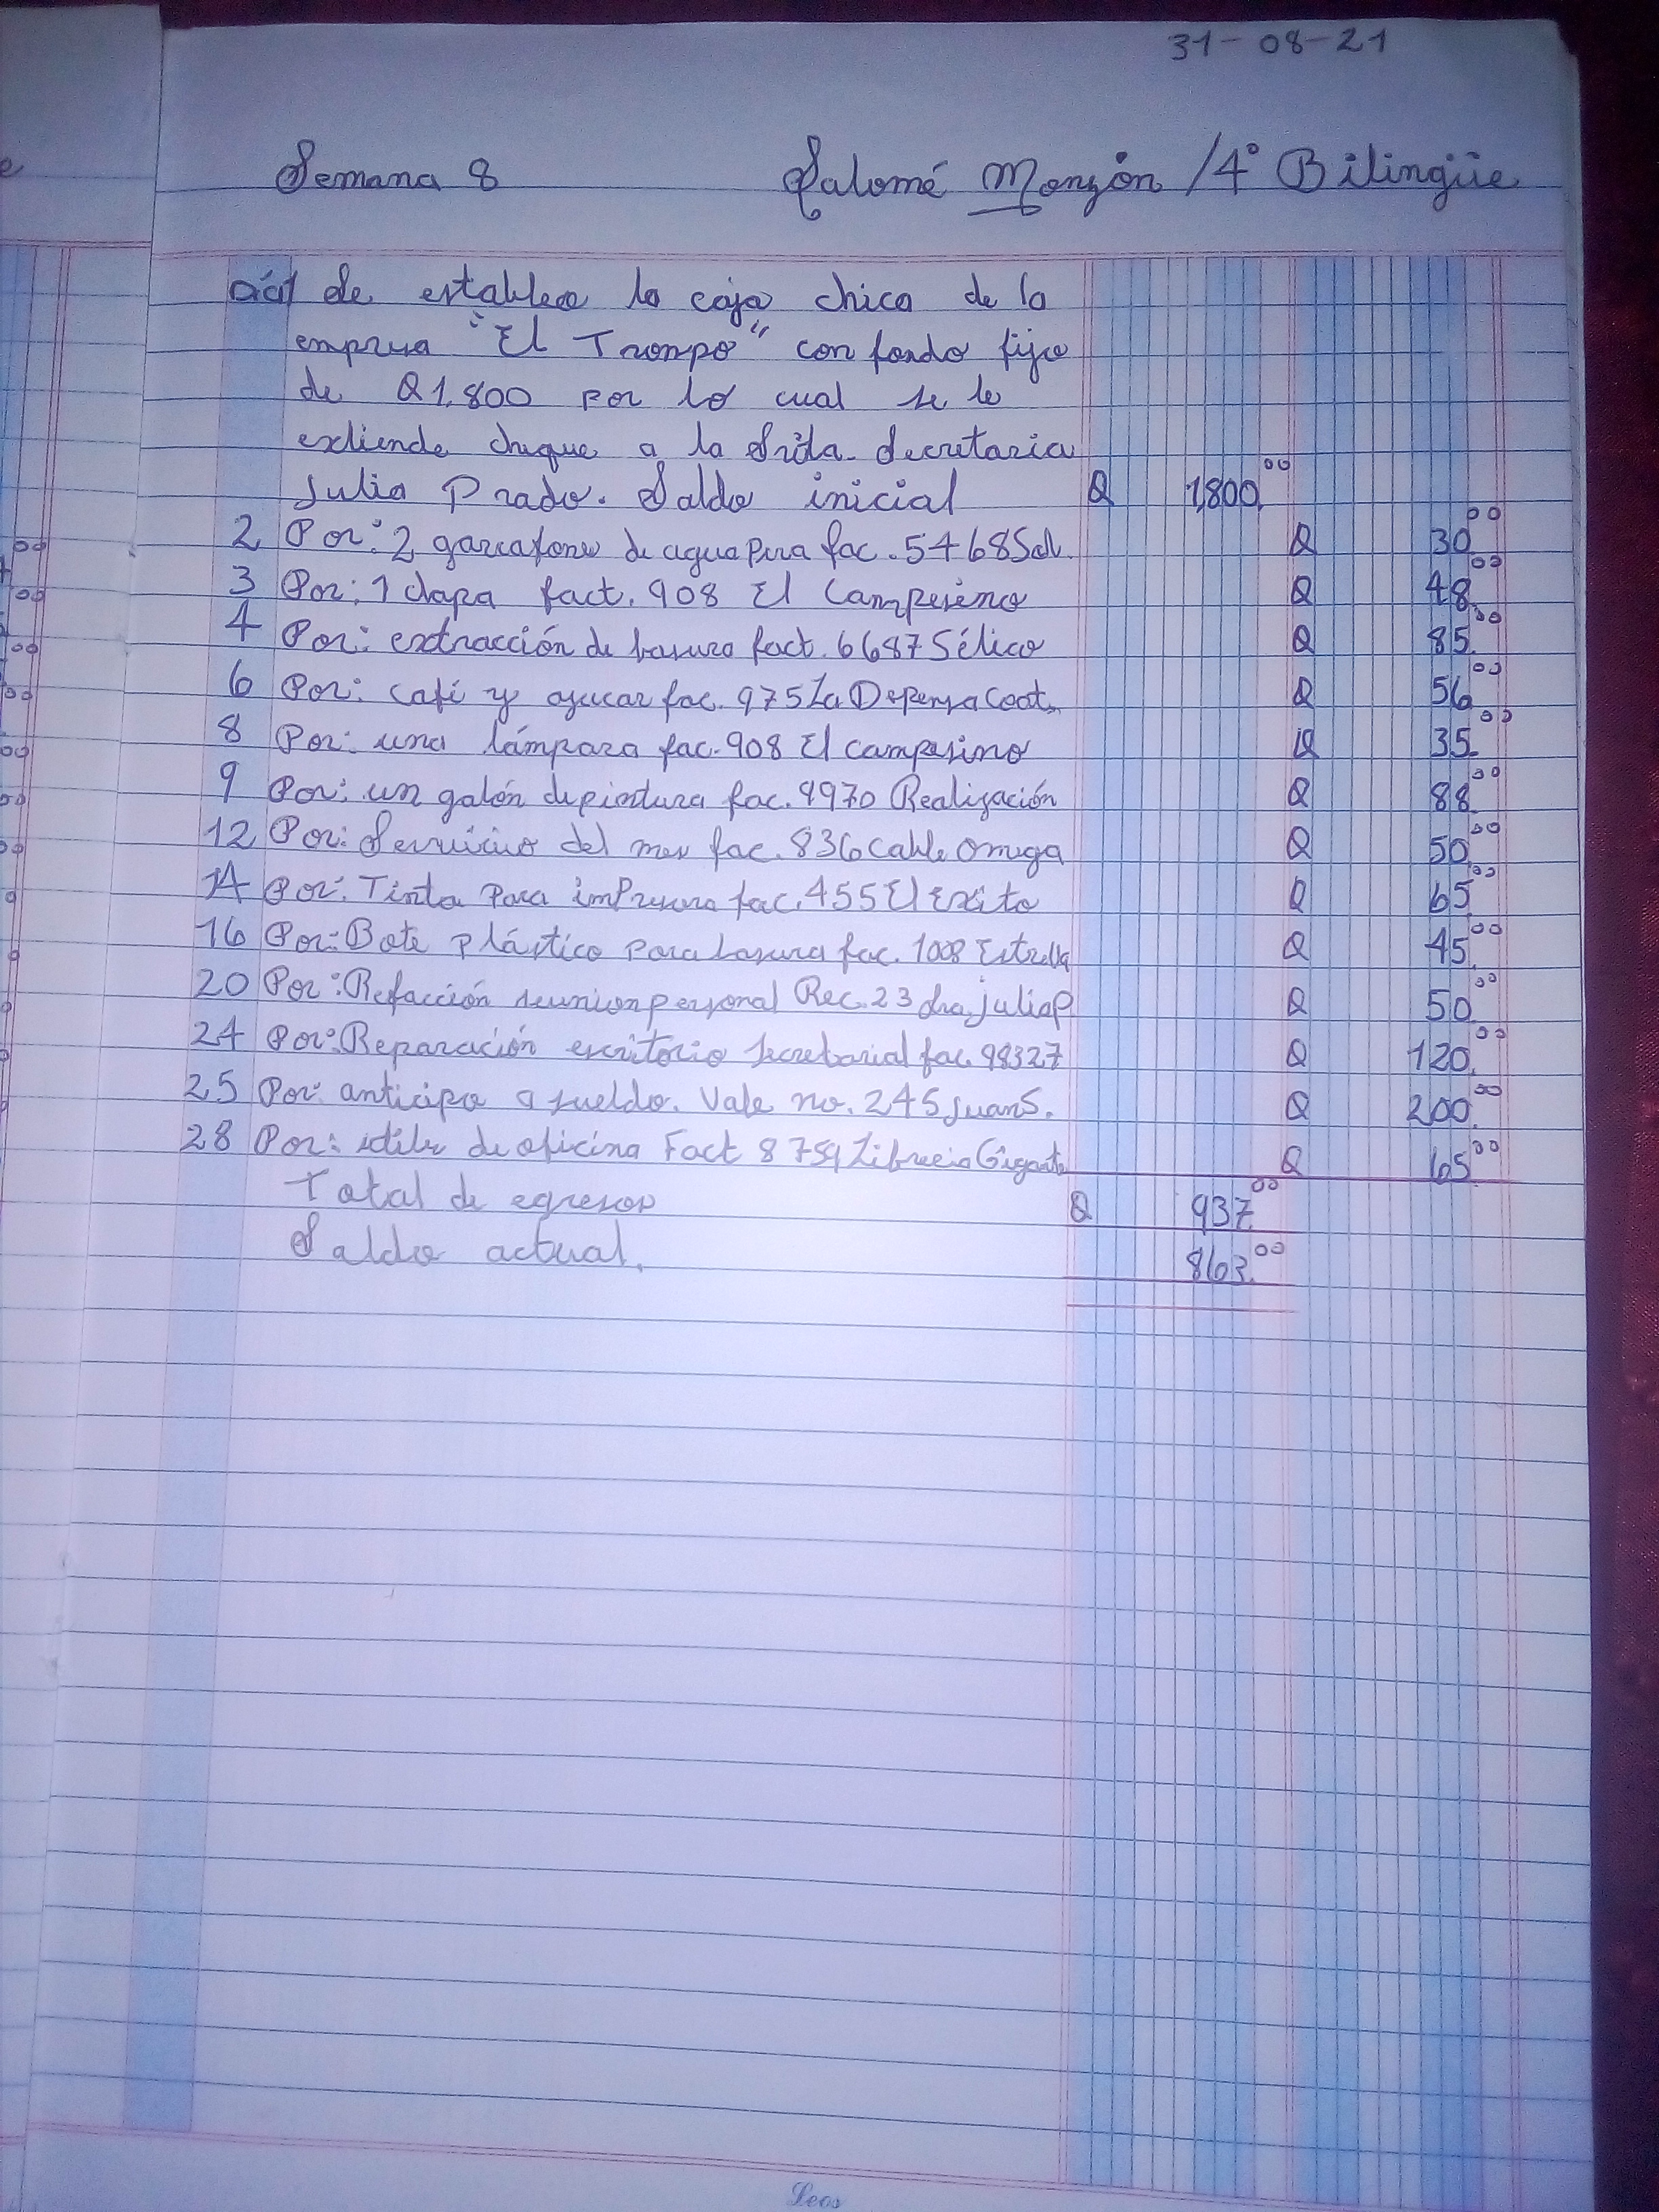 31-08-21
Semana 8 Salomé Monzón /4° Bilingüe
Se establece la caja chica de la
empresa "El Trompo" con fondo fijo
de Q1,800 por lo cual se le
extiende cheque a la Srita. Secretaria
Julia Prado. Saldo inicial Q 1,800.00
2 Por: 2 garrafones de agua pura fac. 5468 Sal. Q 30.00
3 Por: 1 chapa fact. 908 El Campesino Q 48.00
4 Por: extracción de basura fact. 6687 Sélico Q 85.00
6 Por: café y azucar fac. 975 La Depensa Coat. Q 56.00
8 Por: una lámpara fac. 908 El campesino Q 35.00
9 Por: un galón de pintura fac. 8970 Realización Q 88.00
12 Por: Servicio del mes fac. 836 Cable Omega Q 50.00
14 Por: Tinta Para imPresora fac. 455 El Exito Q 65.00
16 Por: Bote plástico para basura fac. 1008 Estrella Q 45.00
20 Por: Refacción reunion personal Rec. 23 dra. julia P Q 50.00
24 Por: Reparación escritorio secretarial fac. 98327 Q 120.00
25 Por: anticipo a sueldo. Vale no. 245 juan S. Q 200.00
28 Por: útiles de oficina Fact 8759 Libreria Gigante Q 65.00
Total de egresos Q 937.00
Saldo actual. 863.00
Leos